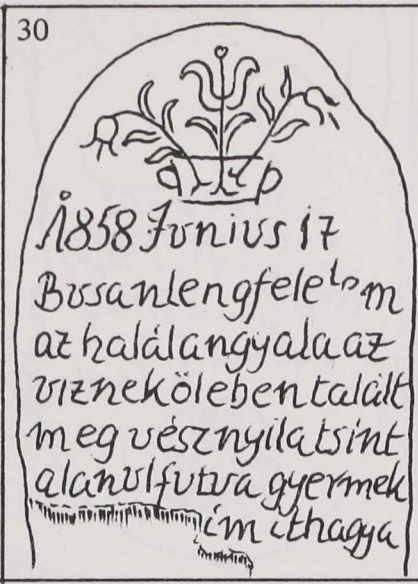 30
1858 Junius 17
Busanlengfeletem
az halálangyalaaz
vıznekölebentalált
meg vésznyilatsint
alanulfutva gyermek
im ithagya